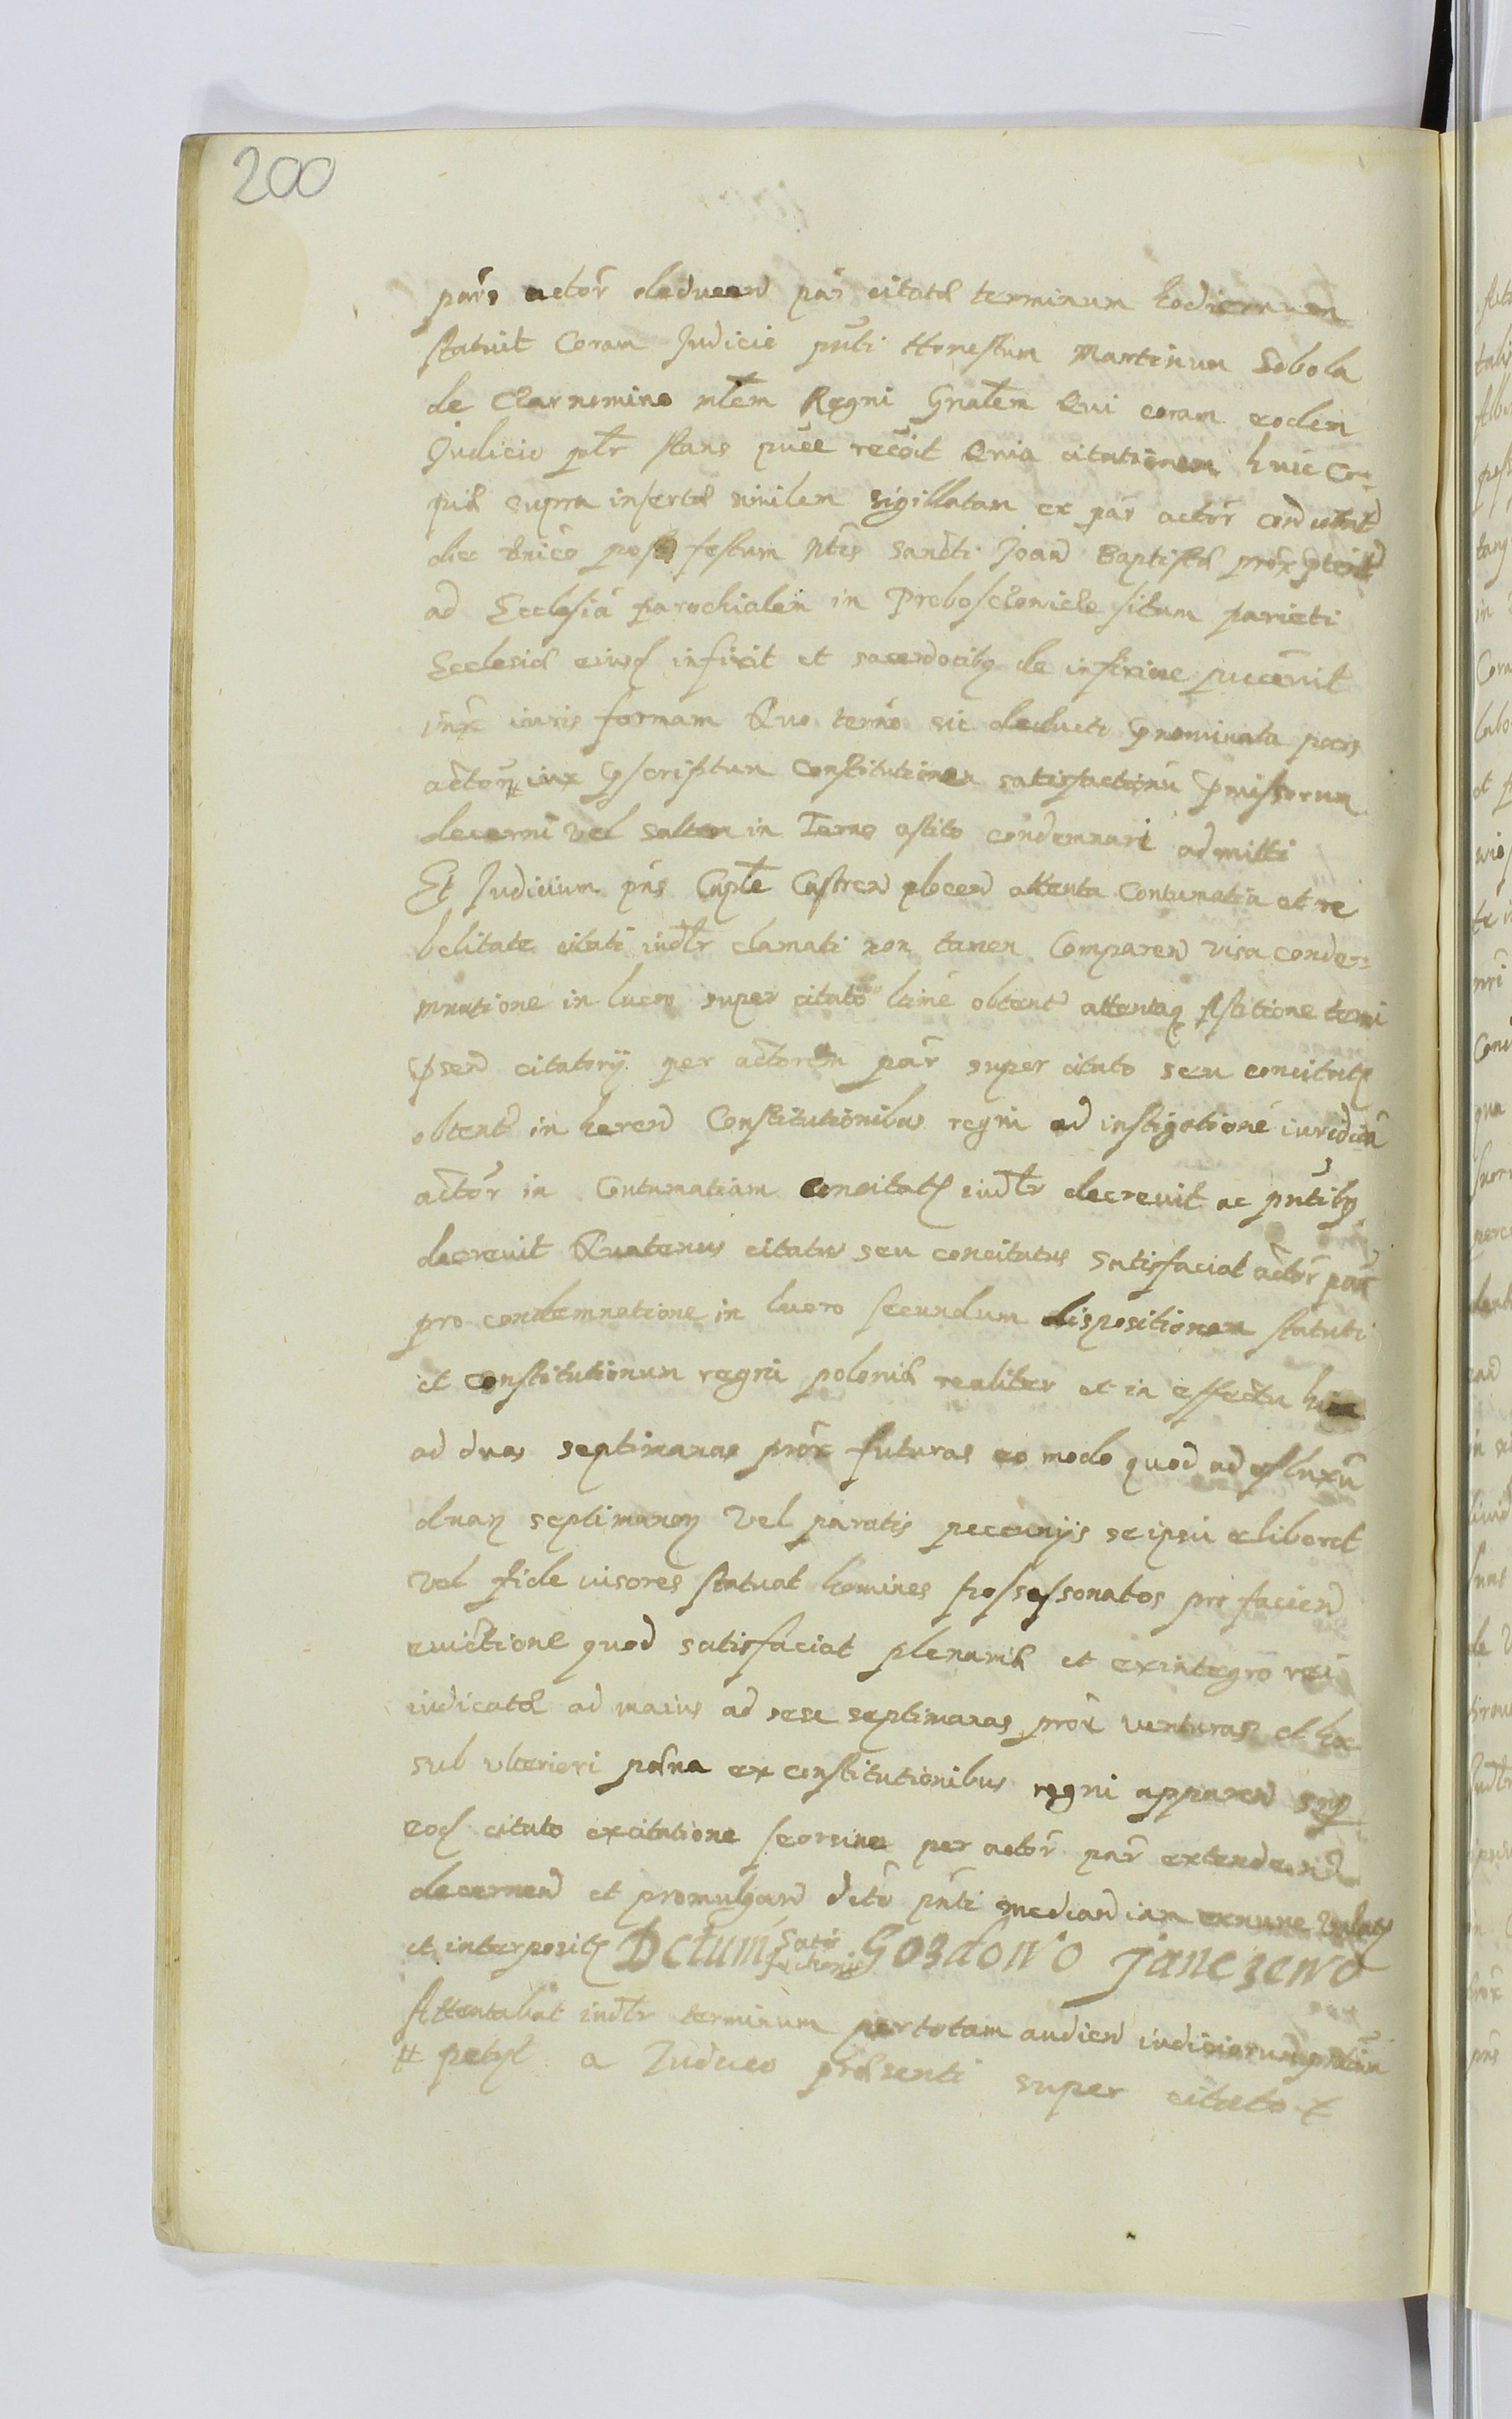 200
pars actor deducend par citatae terminum hodiernum
statuit Coram Judicio pnti Honestum Martinum Sobola
de Czarnomino mlem Regni Gnalem Qui coram eodem
Judicio pltr stans puce recoit Quia citationem huic co
piae supra insertae similem sigillatam ex par actor
die post festum Ntis Sancti Joan Baptistae prox
ad Ecclesia parochialem in sitam parieti
Ecclesiae eiusd infixit et sacerdotibq de infixione
iuris formam Quo termo sic deducto pnominata pars
actorea # iux pscriptum Constitutionem satisfactionu pmissorum
decerni vel saltem in Termo astito condemnari admitti
Et Judicium pns Caple Castren attenta Contumatia et re
belitate citati iudlr clamati non tamen Comparen visa conde
mnatione in lucro super citato obtent attentaq Astitione termi
psen citatorij per actorem par super citato seu concitato
obtent in heren Constitutionibus regni ad instigatione iuridica
actor in Contumatiam concitati iudlr decrevit ac pntibq
decrevit Quatenus citatus seu concitatus satisfaciat actor par
pro condemnatione in lucro secundum dispositionem statuti
et constitutionum regni poloniae realiter et in effectu hinc
ad duas septimanas prox futuras eo modo quod ad effluxu
duar septimanar vel paratis pecunijs se ipsu eliberet
vel fide iusores statuat homines possessonatos pro facien
evictione quod satisfaciat plenariae et ex integro rei
iudicatae ad maius ad sese septimanas prox venturas et hoc
sub ulteriori paena ex constitutionibus regni apparen
eod citato excitatione seorsina per actor par extendend
decernen et promulgan dcto pnti median iam exnunc
et interposit Dctum Satisfactionis Gozdowo Janczewo
Attentabat iudlr terminum per totam audien iudiciorum pntiu
# petyt a Iudicio praesenti super citato